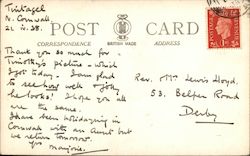 Tintagel
N. Cornwall
21 iv. 38.
POST CARD
CORRESPONDENCE
BRITISH MADE
ADDRESS
Thank you so much for
Timothy's picture - which
I got today. I am glad
to see how well & jolly
he looks! I hope you all
are the same.
I have been holidaying in
Cornwall with an Aunt but
we return tomorrow.
Yrs Marjorie.
Rev. Mr Lewis Lloyd,
53. Belper Road
Derby